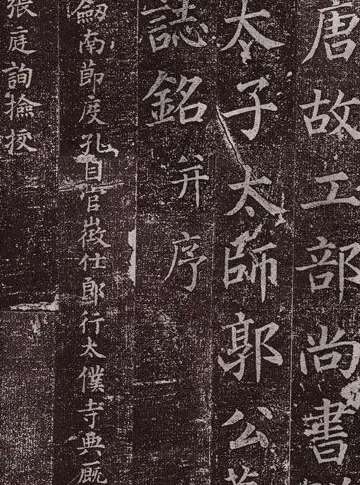 唐故工部尚書
太子太師郭公
誌銘并序
劔南節度孔目官徵仕郎行太僕寺典廐
張庭詢撿挍